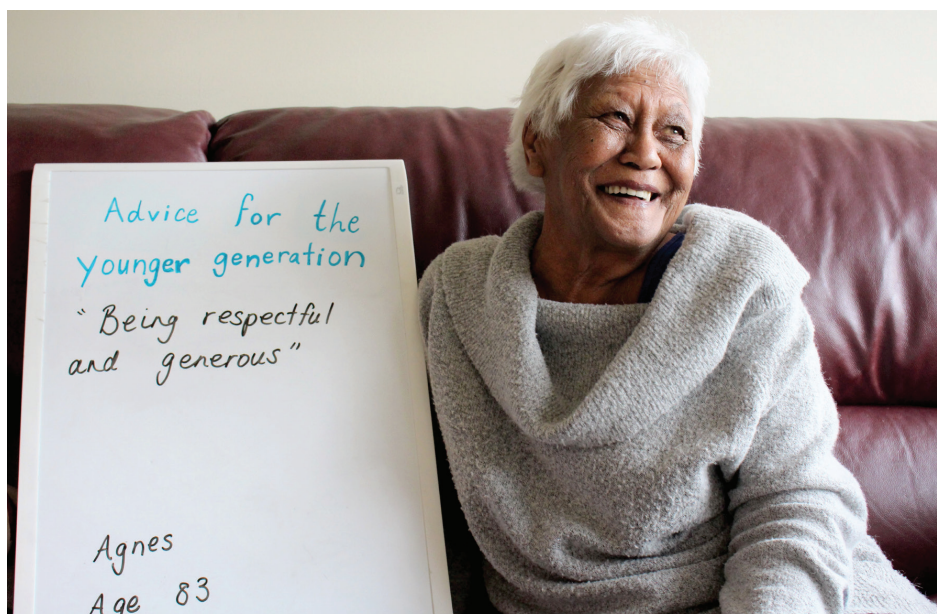 Advice for the
younger generation
"Being respectful
and generous"
Agnes
Age 83